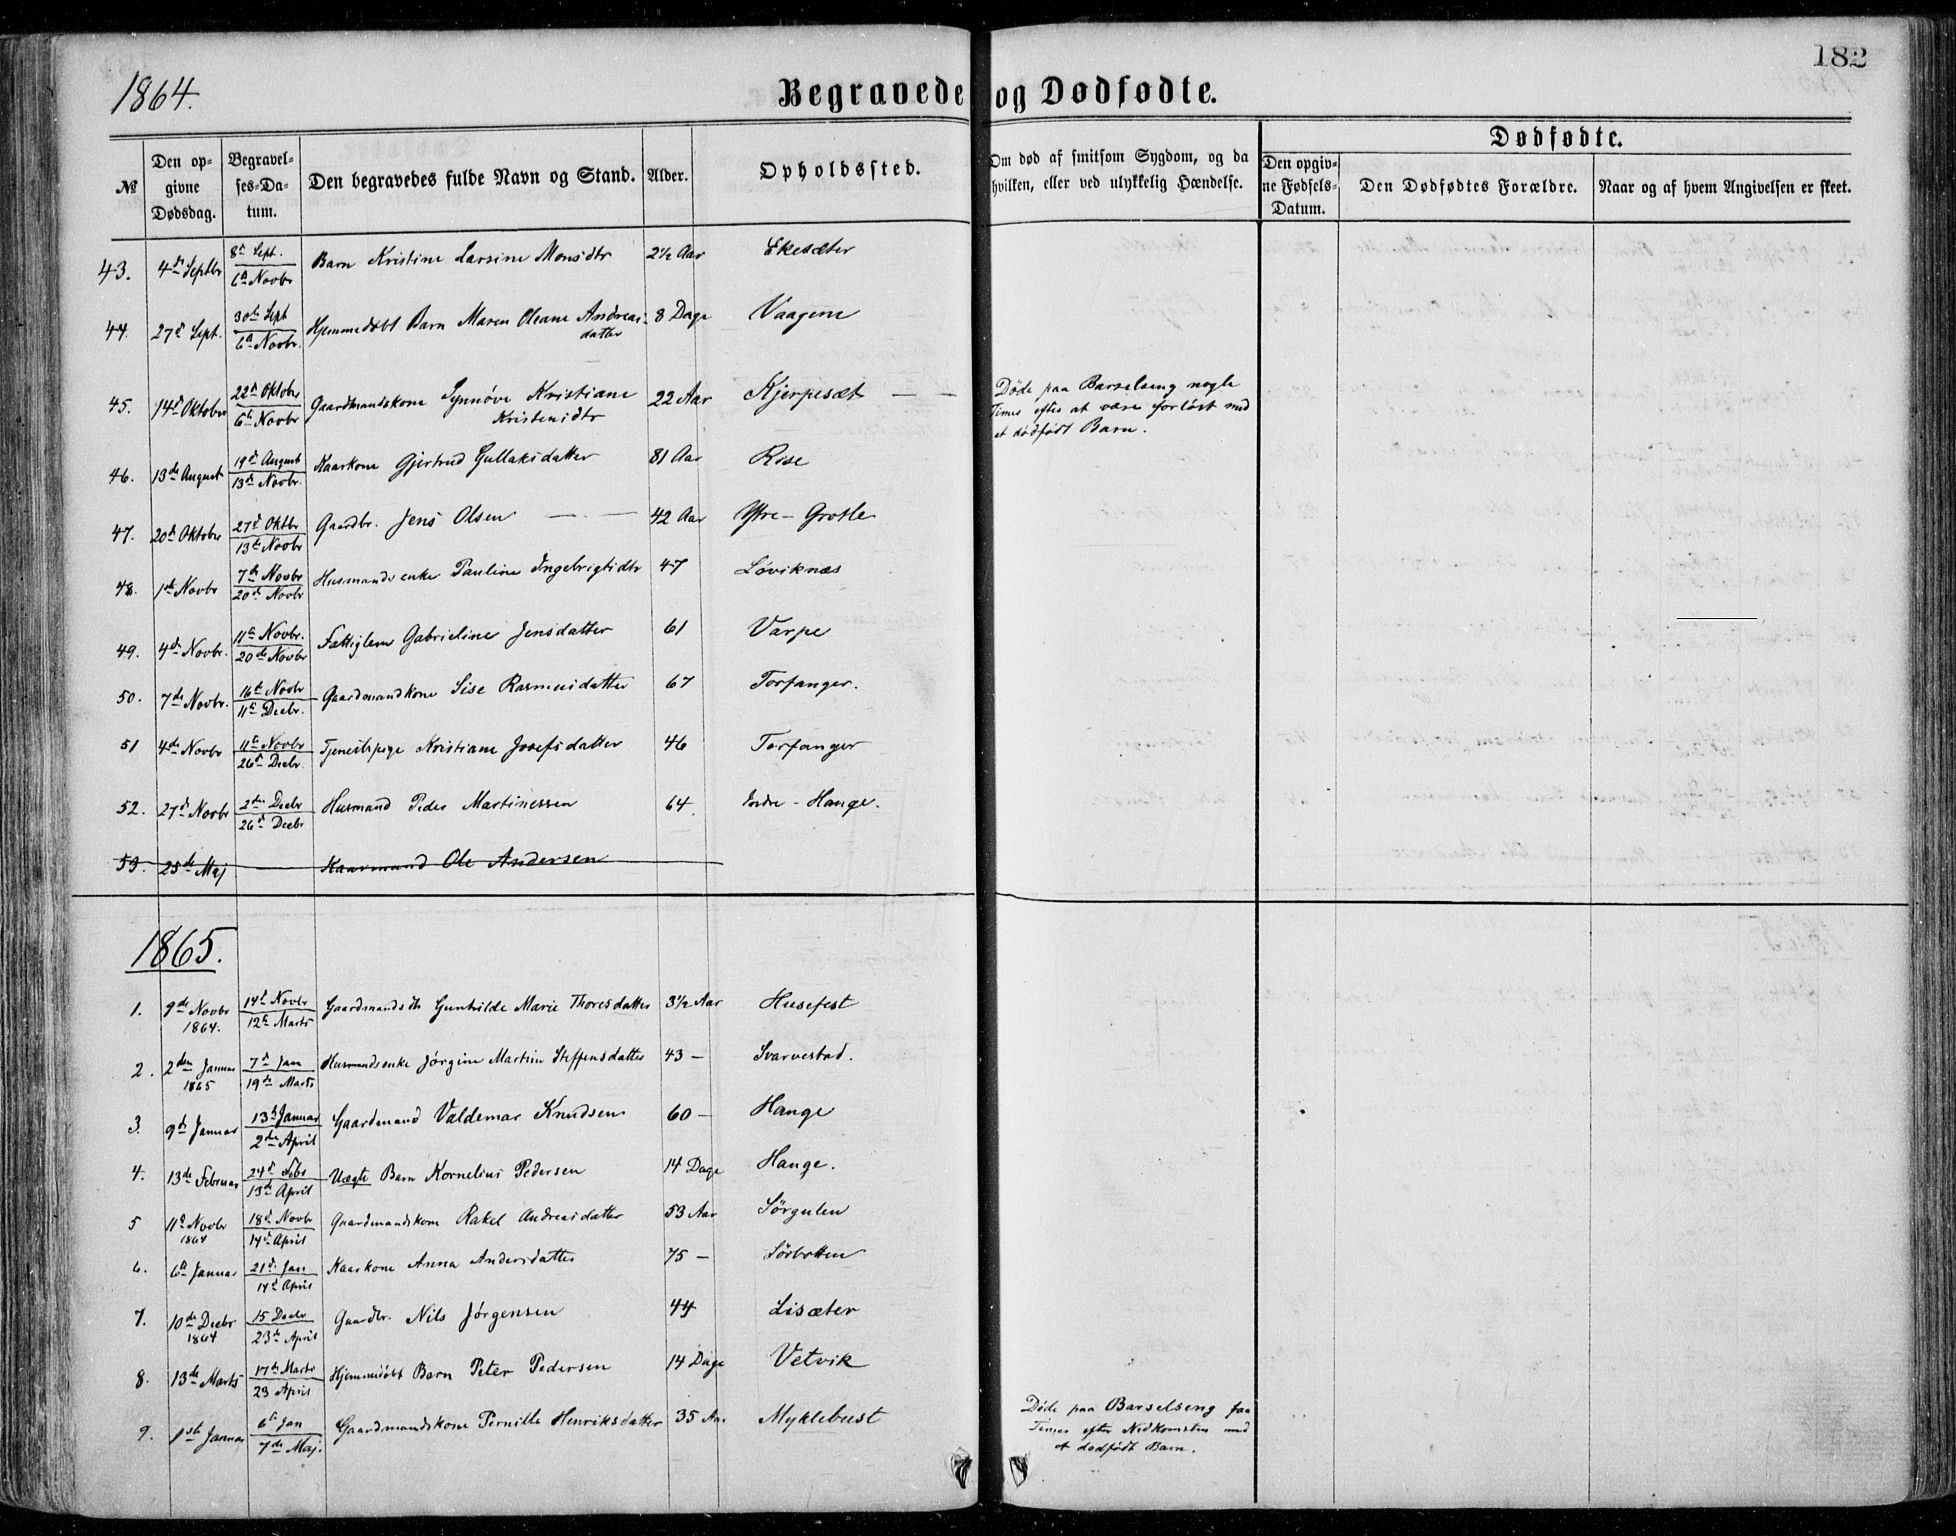 182
1864.
Begravede og Dødfødte.
Dødfødte.
№ | Den opgivne Dødsdag. | Begravelses-Datum. | Den begravedes fulde Navn og Stand. | Alder. | Opholdssted. | Om død af smitsom Sygdom, og da hvilken, eller ved ulykkelig Hændelse. | Den opgivne Fødsels-Datum. | Den Dødfødtes Forældre. | Naar og af hvem Angivelsen er skeet.
43. 4de Septbr 8de Sept. / 6te Novbr Barn Kristine Larsine Monsdtr 2½ Aar Ekesæter
44. 27de Sept. 30te Sept / 6te Novbr. Hjemmedøbt Barn Maren Oleane Andreasdatter 8 Dage Vaagene
45. 14de Oktober 22de Oktober / 6te Novbr Gaardmandskone Synnøve Kristiane Kristensdtr 22 Aar Kjerpesæt — — Døde paa Barselseng nogle
Timer efter at være forløst med
et dødfødt Barn.
46. 13de August 19de August / 13de Novbr. Kaarkone Gjertrud Gullaksdatter 81 Aar Rise
47. 20de Oktober 27de Oktbr / 13te Novbr Gaardbr. Jens Olsen — — 42 Aar Ytre-Grotle
48. 1ste Novbr 7de Novbr / 20de Novbr Husmands enke Pauline Ingebrigtsdtr 47 Løviknæs
49. 4de Novbr. 11te Novbr. / 20de Novbr Fattiglem Gabrieline Jensdatter 61 Varpe
50. 7de Novbr. 16te Novbr / 11te Decbr. Gaardmandkone Sise Rasmusdatter 67 Torfanger.
51 4de Novbr 11te Novbr / 26de Decbr. Tjenestpige Kristiane Josefsdatter 46 Torfanger
52. 27de Novbr 2den Decbr / 26de Decbr Husmand Peder Martinessen 64. Indre-Hauge.
53. 25de Maj Kaarmand Ole Andersen
1865.
1. 9de Novbr 1864. 14de Novbr / 12te Marts Gaardmandsdtr Gunhilde Marie Thoresdatter 3½ Aar Husefest
2. 2den Januar 1865 7de Jan / 19de Marts Husmandsenke Jørgine Martine Steffensdatter 43 — Svarvestad.
3. 9de Januar 13de Januar / 2den April Gaardmand Valdemar Knudsen 60 — Hauge
4. 13de Februar 24de Febr / 13de April Uægte Barn Kornelius Pedersen 14 Dage Hauge.
5 11te Novbr 1864 18de Novbr / 14de April Gaardmandskone Rakel Andreasdatter 53 Aar Sørgulen
6. 6te Januar 21de Jan / 14de April Kaarkone Anna Andersdatter 75 — Sørbotten
7. 10de Decbr 1864 15 Decbr / 23de April Gaardbr. Nils Jørgensen 44 Lisæter
8. 13de Marts 17de Marts / 23 April Hjemmedøbt Barn Peter Pedersen 14 Dage Vetvik
9. 1ste Januar 6te Jan / 7de Maj. Gaardmandskone Pernille Henriksdatter 35 Aar Myklebust Døde paa Barselseng faa
Timer efter Nedkomsten med
et dødfødt Barn.